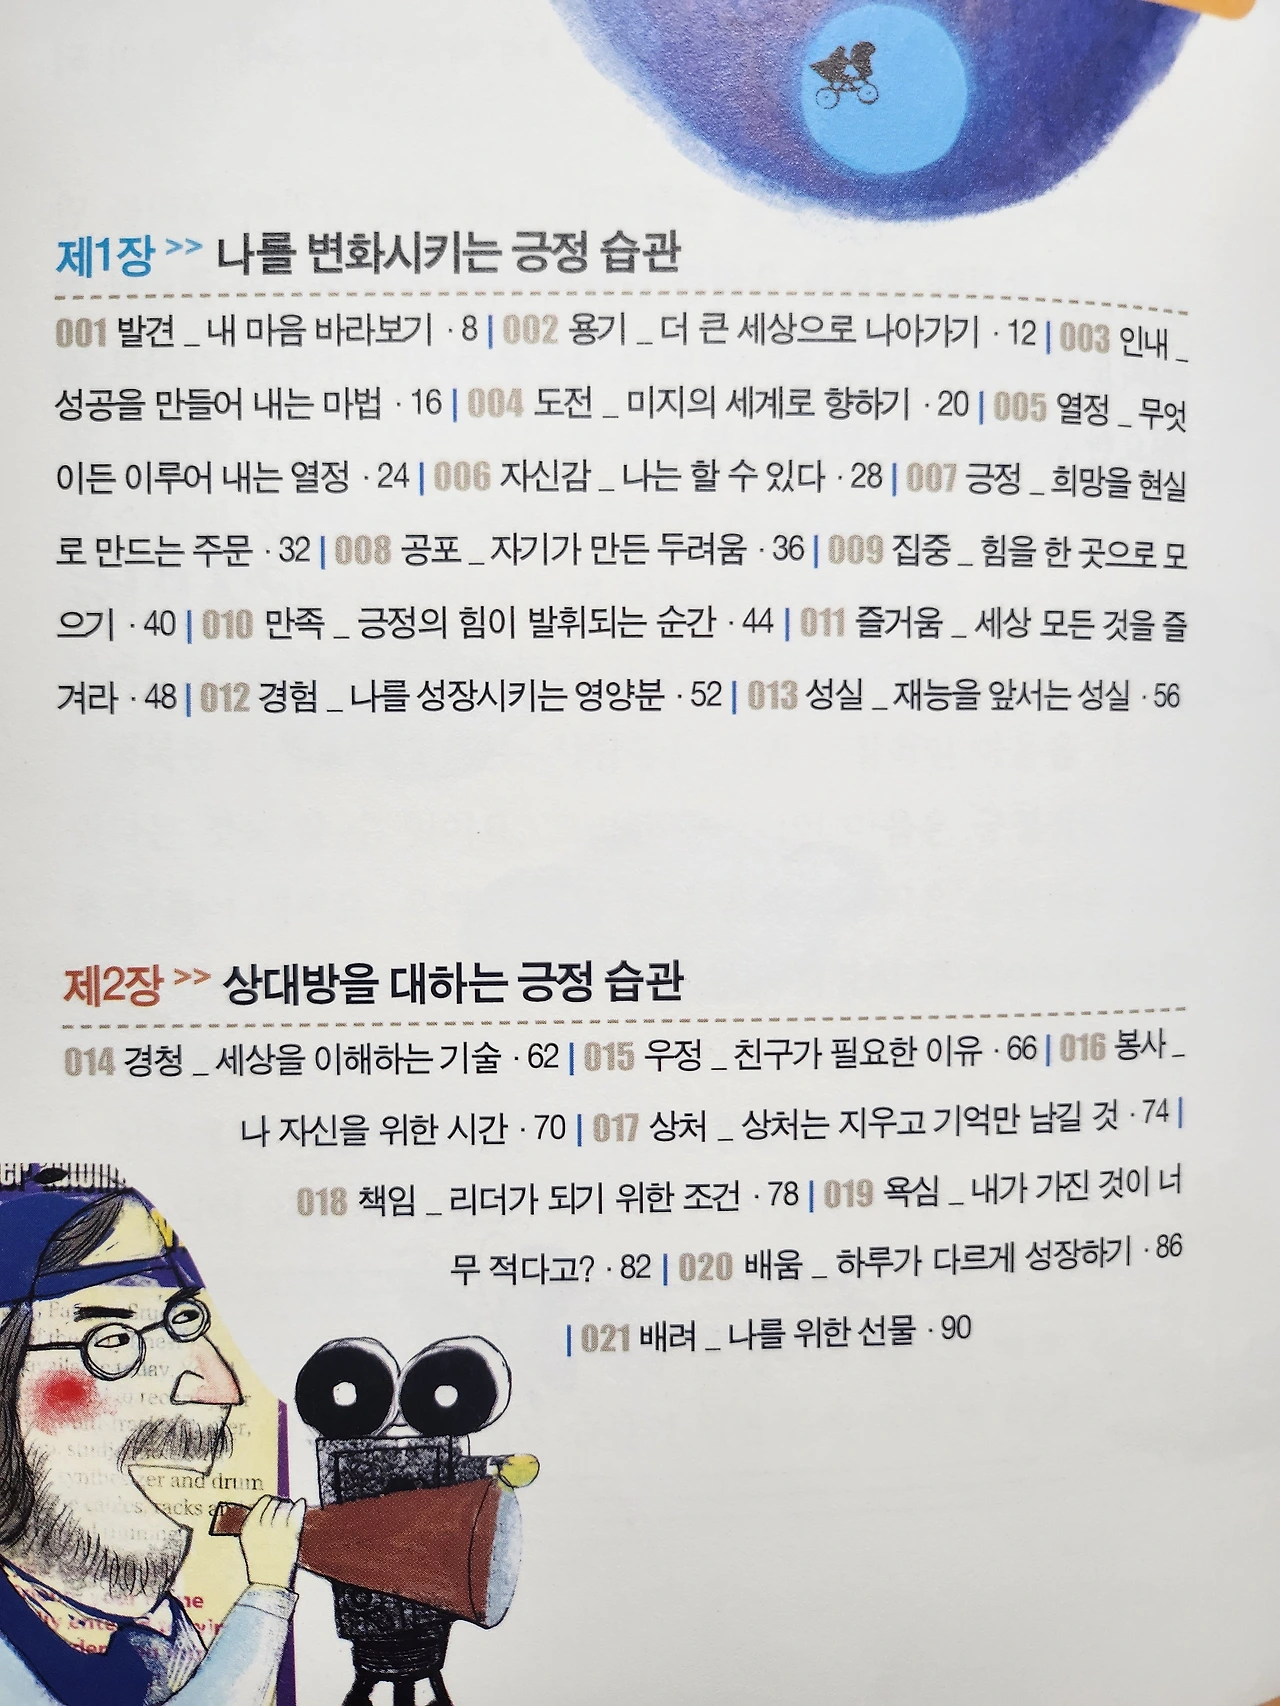 제1장 >> 나를 변화시키는 긍정 습관
001 발견 _ 내 마음 바라보기 · 8 | 002 용기 _ 더 큰 세상으로 나아가기 · 12 | 003 인내 _
성공을 만들어 내는 마법 · 16 | 004 도전 _ 미지의 세계로 향하기 · 20 | 005 열정 _ 무엇
이든 이루어 내는 열정 · 24 | 006 자신감 _ 나는 할 수 있다 · 28 | 007 긍정 _ 희망을 현실
로 만드는 주문 · 32 | 008 공포 _ 자기가 만든 두려움 · 36 | 009 집중 _ 힘을 한 곳으로 모
으기 · 40 | 010 만족 _ 긍정의 힘이 발휘되는 순간 · 44 | 011 즐거움 _ 세상 모든 것을 즐
겨라 · 48 | 012 경험 _ 나를 성장시키는 영양분 · 52 | 013 성실 _ 재능을 앞서는 성실 · 56
제2장 >> 상대방을 대하는 긍정 습관
014 경청 _ 세상을 이해하는 기술 · 62 | 015 우정 _ 친구가 필요한 이유 · 66 | 016 봉사 _
나 자신을 위한 시간 · 70 | 017 상처 _ 상처는 지우고 기억만 남길 것 · 74 |
018 책임 _ 리더가 되기 위한 조건 · 78 | 019 욕심 _ 내가 가진 것이 너
무 적다고? · 82 | 020 배움 _ 하루가 다르게 성장하기 · 86
| 021 배려 _ 나를 위한 선물 · 90
and drum